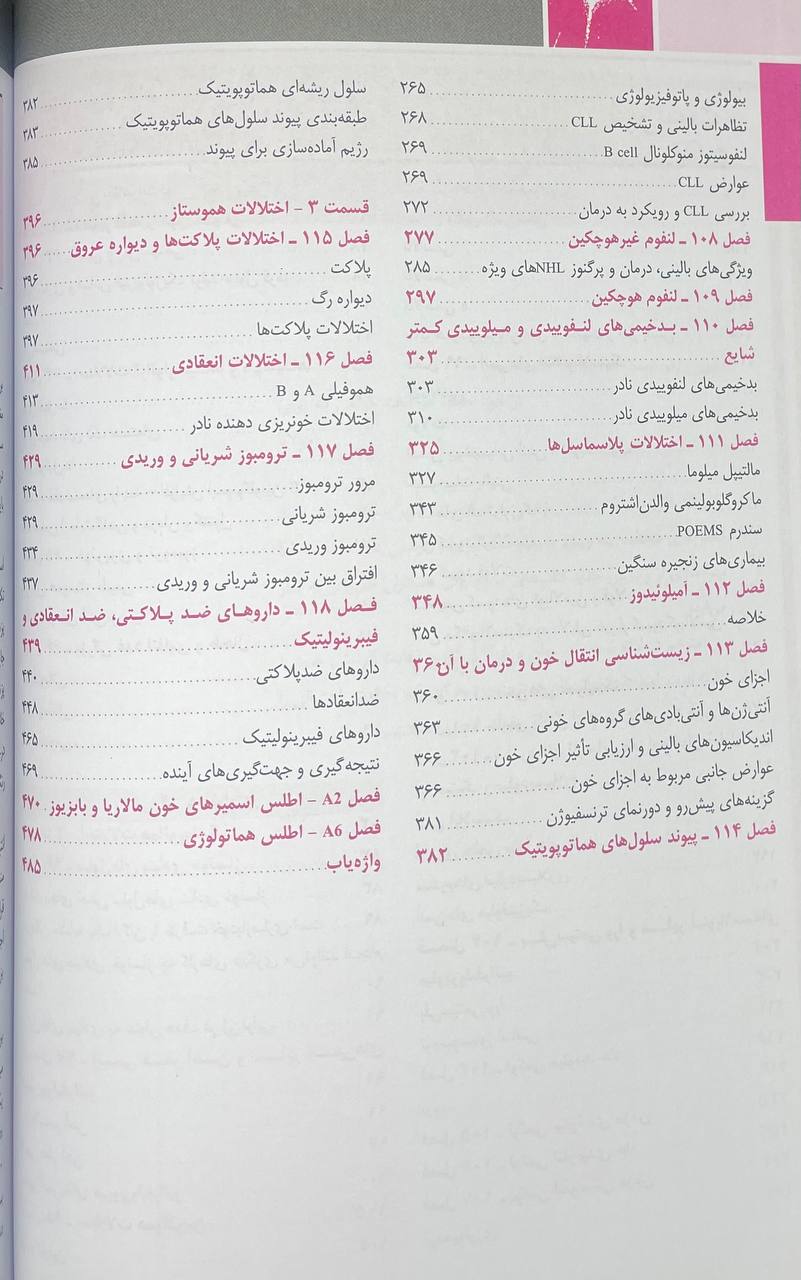 بیولوژی و پاتوفیزیولوژی ۲۶۵
تظاهرات بالینی و تشخیص CLL ۲۶۸
لنفوسیتوز منوکلونال B cell ۲۶۹
عوارض CLL ۲۶۹
بررسی CLL و رویکرد به درمان ۲۷۲
فصل ۱۰۸ ـ لنفوم غیرهوچکین ۲۷۷
ویژگی‌های بالینی، درمان و پرگنوز NHLهای ویژه ۲۸۵
فصل ۱۰۹ ـ لنفوم هوچکین ۲۹۷
فصل ۱۱۰ ـ بدخیمی‌های لنفوییدی و میلوییدی کمتر
شایع ۳۰۳
بدخیمی‌های لنفوییدی نادر ۳۰۳
بدخیمی‌های میلوییدی نادر ۳۱۰
فصل ۱۱۱ ـ اختلالات پلاسماسل‌ها ۳۲۵
مالتیپل میلوما ۳۲۷
ماکروگلوبولینمی والدن‌اشتروم ۳۴۳
سندرم POEMS ۳۴۵
بیماری‌های زنجیره سنگین ۳۴۶
فصل ۱۱۲ ـ آمیلوئیدوز ۳۴۸
خلاصه ۳۵۹
فصل ۱۱۳ ـ زیست‌شناسی انتقال خون و درمان با آن ۳۶۰
اجزای خون ۳۶۰
آنتی‌ژن‌ها و آنتی‌بادی‌های گروه‌های خونی ۳۶۳
اندیکاسیون‌های بالینی و ارزیابی تأثیر اجزای خون ۳۶۶
عوارض جانبی مربوط به اجزای خون ۳۶۶
گزینه‌های پیش‌رو و دورنمای ترنسفیوژن ۳۸۱
فصل ۱۱۴ ـ پیوند سلول‌های هماتوپویتیک ۳۸۲
سلول ریشه‌ای هماتوپویتیک ۳۸۲
طبقه‌بندی پیوند سلول‌های هماتوپویتیک ۳۸۳
رژیم آماده‌سازی برای پیوند ۳۸۵
قسمت ۳ - اختلالات هموستاز ۳۹۶
فصل ۱۱۵ ـ اختلالات پلاکت‌ها و دیواره عروق ۳۹۶
پلاکت ۳۹۶
دیواره رگ ۳۹۷
اختلالات پلاکت‌ها ۳۹۷
فصل ۱۱۶ ـ اختلالات انعقادی ۴۱۱
هموفیلی A و B ۴۱۳
اختلالات خونریزی دهنده نادر ۴۱۹
فصل ۱۱۷ ـ ترومبوز شریانی و وریدی ۴۲۹
مرور ترومبوز ۴۲۹
ترومبوز شریانی ۴۲۹
ترومبوز وریدی ۴۳۴
افتراق بین ترومبوز شریانی و وریدی ۴۳۷
فصل ۱۱۸ ـ داروهای ضد پلاکتی، ضد انعقادی و
فیبرینولیتیک ۴۳۹
داروهای ضدپلاکتی ۴۴۰
ضدانعقادها ۴۴۸
داروهای فیبرینولیتیک ۴۶۵
نتیجه‌گیری و جهت‌گیری‌های آینده ۴۶۹
فصل A2 - اطلس اسمیرهای خون مالاریا و بابزیوز ۴۷۰
فصل A6 - اطلس هماتولوژی ۴۷۸
واژه‌یاب ۴۸۵